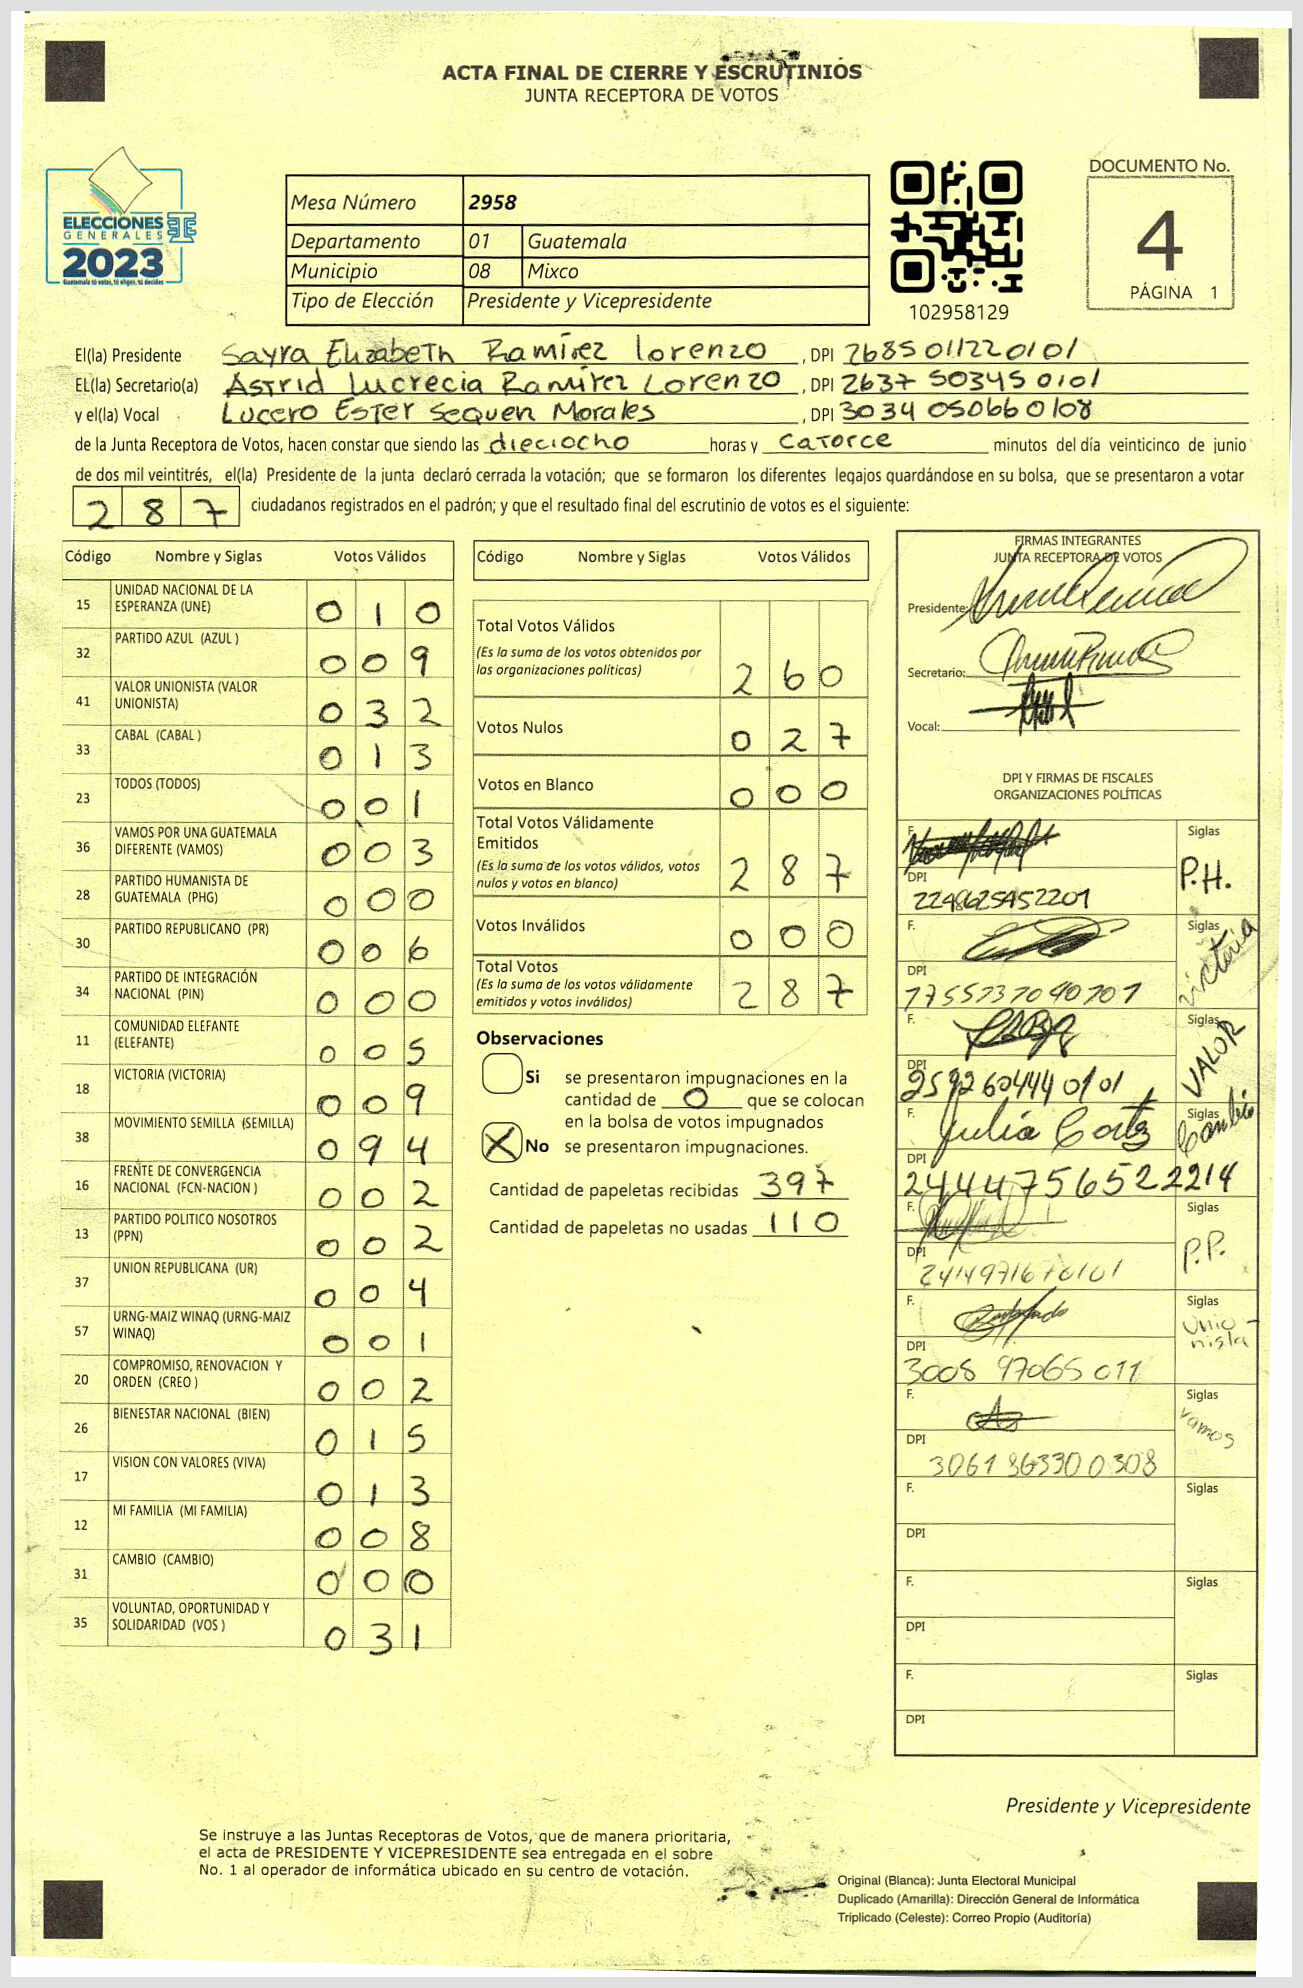 ACTA FINAL DE CIERRE Y ESCRUTINIOS
JUNTA RECEPTORA DE VOTOS
ELECCIONES
GENERALES
2023
Guatemala tú votas, tú eliges, tú decides
Mesa Número 2958
Departamento 01 Guatemala
Municipio 08 Mixco
Tipo de Elección Presidente y Vicepresidente
102958129
DOCUMENTO No.
4
PÁGINA 1
El(la) Presidente Sayra Elizabeth Ramírez Lorenzo, DPI 2685011220101
EL(la) Secretario(a) Astrid Lucrecia Ramírez Lorenzo, DPI 2637 50345 0101
y el(la) Vocal Lucero Ester Sequen Morales, DPI 3034 05066 0108
de la Junta Receptora de Votos, hacen constar que siendo las dieciocho horas y catorce minutos del día veinticinco de junio
de dos mil veintitrés, el(la) Presidente de la junta declaró cerrada la votación; que se formaron los diferentes legajos guardándose en su bolsa, que se presentaron a votar
287 ciudadanos registrados en el padrón; y que el resultado final del escrutinio de votos es el siguiente:
Código Nombre y Siglas Votos Válidos
15 UNIDAD NACIONAL DE LA ESPERANZA (UNE) 010
32 PARTIDO AZUL (AZUL ) 009
41 VALOR UNIONISTA (VALOR UNIONISTA) 032
33 CABAL (CABAL ) 013
23 TODOS (TODOS) 001
36 VAMOS POR UNA GUATEMALA DIFERENTE (VAMOS) 003
28 PARTIDO HUMANISTA DE GUATEMALA (PHG) 000
30 PARTIDO REPUBLICANO (PR) 006
34 PARTIDO DE INTEGRACIÓN NACIONAL (PIN) 000
11 COMUNIDAD ELEFANTE (ELEFANTE) 005
18 VICTORIA (VICTORIA) 009
38 MOVIMIENTO SEMILLA (SEMILLA) 094
16 FRENTE DE CONVERGENCIA NACIONAL (FCN-NACION ) 002
13 PARTIDO POLITICO NOSOTROS (PPN) 002
37 UNION REPUBLICANA (UR) 004
57 URNG-MAIZ WINAQ (URNG-MAIZ WINAQ) 001
20 COMPROMISO, RENOVACION Y ORDEN (CREO ) 002
26 BIENESTAR NACIONAL (BIEN) 015
17 VISION CON VALORES (VIVA) 013
12 MI FAMILIA (MI FAMILIA) 008
31 CAMBIO (CAMBIO) 000
35 VOLUNTAD, OPORTUNIDAD Y SOLIDARIDAD (VOS ) 031
Código Nombre y Siglas Votos Válidos
Total Votos Válidos 260
(Es la suma de los votos obtenidos por
las organizaciones políticas)
Votos Nulos 027
Votos en Blanco 000
Total Votos Válidamente
Emitidos 287
(Es la suma de los votos válidos, votos
nulos y votos en blanco)
Votos Inválidos 000
Total Votos 287
(Es la suma de los votos válidamente
emitidos y votos inválidos)
Observaciones
Si se presentaron impugnaciones en la
cantidad de 0 que se colocan
en la bolsa de votos impugnados
X No se presentaron impugnaciones.
Cantidad de papeletas recibidas 397
Cantidad de papeletas no usadas 110
FIRMAS INTEGRANTES
JUNTA RECEPTORA DE VOTOS
Presidente:
Secretario:
Vocal:
DPI Y FIRMAS DE FISCALES
ORGANIZACIONES POLÍTICAS
F. Siglas P.H.
DPI 2248625452201
F. Siglas victoria
DPI
F. Siglas VALOR
DPI 2592604440101
F. Julia Cortz Siglas Cambio
DPI 2444756522214
F. Siglas P.P.
DPI 2414971670101
F. Siglas Unio-
nista
DPI 3008 97065 011
F. Siglas vamos
DPI 3061 863300308
F. Siglas
DPI
F. Siglas
DPI
F. Siglas
DPI
Presidente y Vicepresidente
Se instruye a las Juntas Receptoras de Votos, que de manera prioritaria,
el acta de PRESIDENTE Y VICEPRESIDENTE sea entregada en el sobre
No. 1 al operador de informática ubicado en su centro de votación.
Original (Blanca): Junta Electoral Municipal
Duplicado (Amarilla): Dirección General de Informática
Triplicado (Celeste): Correo Propio (Auditoría)